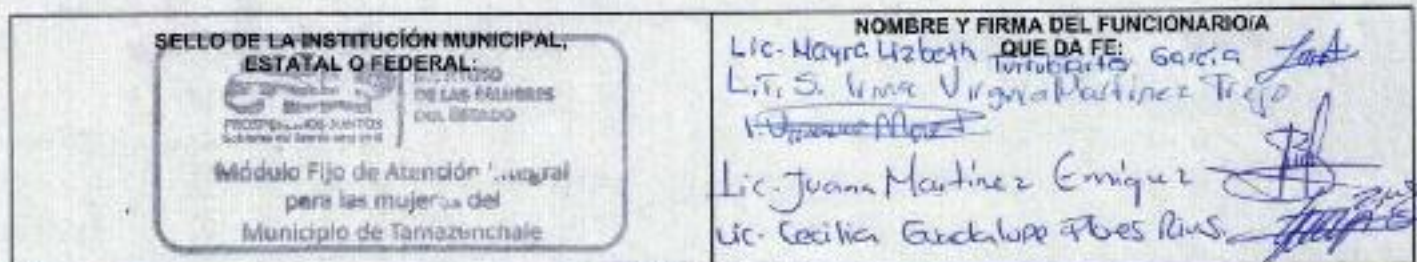 SELLO DE LA INSTITUCIÓN MUNICIPAL,
ESTATAL O FEDERAL:
INSTITUTO
DE LAS MUJERES
DEL ESTADO
PROSPEREMOS JUNTOS
Módulo Fijo de Atención Integral
para las mujeres del
Municipio de Tamazunchale
NOMBRE Y FIRMA DEL FUNCIONARIO/A
QUE DA FE:
Lic. Mayra Lizbeth Turrubiartes García
L.T.S. Irma Virginia Martinez Trejo
Lic. Juana Martínez Enriquez
Lic. Cecilia Guadalupe Flores Rivs.